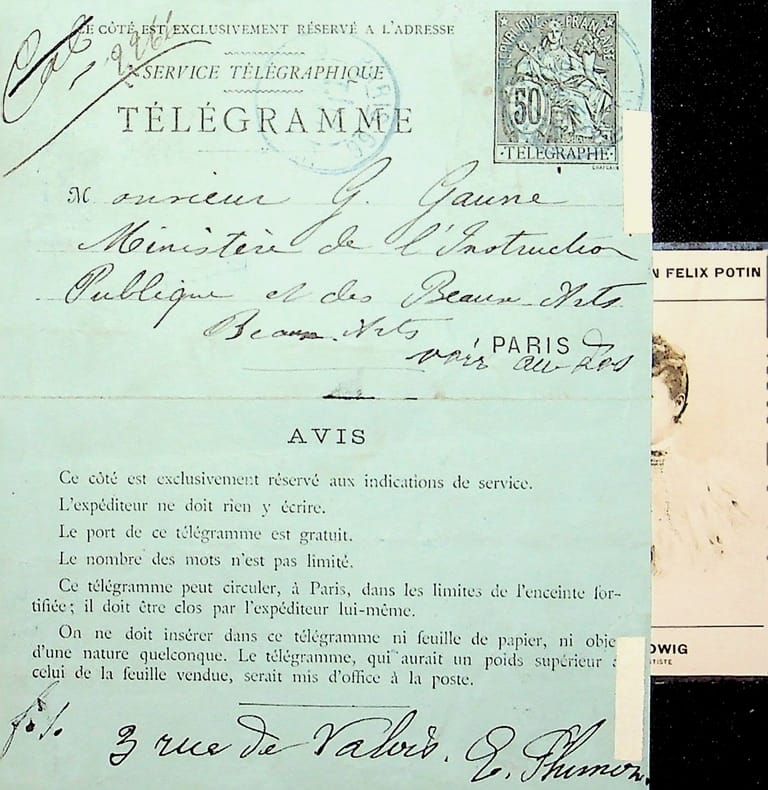 CE CÔTÉ EST EXCLUSIVEMENT RÉSERVÉ A L'ADRESSE
SERVICE TÉLÉGRAPHIQUE
TÉLÉGRAMME
RÉPUBLIQUE FRANÇAISE
50
TÉLÉGRAPHE
CHAPLAIN
Monsieur G. Gaune
Ministère de l'Instruction
Publique et des Beaux-Arts
Beaux-Arts
PARIS
voir au dos
AVIS
Ce côté est exclusivement réservé aux indications de service.
L'expéditeur ne doit rien y écrire.
Le port de ce télégramme est gratuit.
Le nombre des mots n'est pas limité.
Ce télégramme peut circuler, à Paris, dans les limites de l'enceinte for-
tifiée; il doit être clos par l'expéditeur lui-même.
On ne doit insérer dans ce télégramme ni feuille de papier, ni obje
d'une nature quelconque. Le télégramme, qui aurait un poids supérieur
celui de la feuille vendue, serait mis d'office à la poste.
3 rue de Valois. E.
N FELIX POTIN
DWIG
TISTE